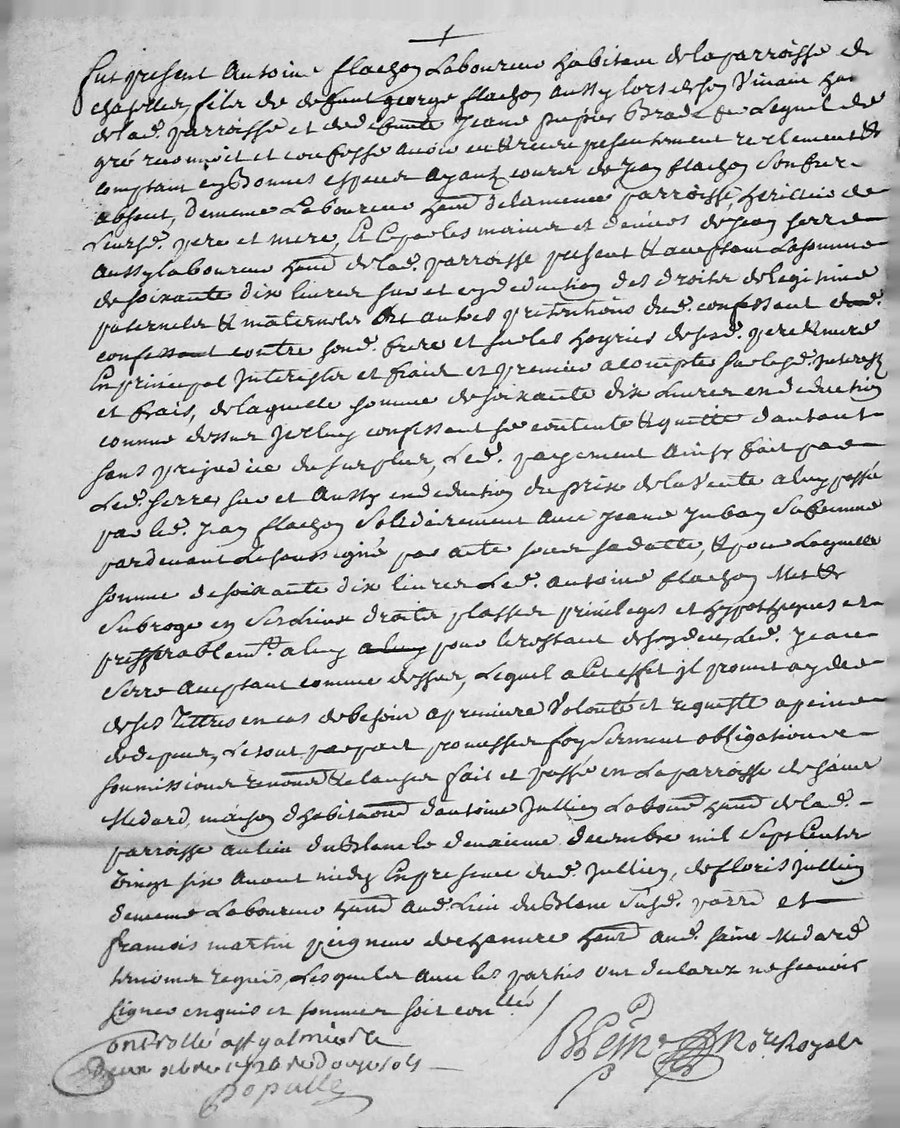 Fut present Antoine flachon Laboureur habitant de la parroisse de
chaptier, filz de deffunt george flachon aussy lors de son vivant
de lad. parroisse et de deffunte Jeane Lequel de
gré reconnoit et confesse avoir receu presentement reelement et
comptant en bonnes especes ayant cours de Jean flachon son frere
absent, de meme Laboureur hant. de la meme parroisse, heritier de
Leursd. pere et mere, et ce par les mains et deniers de Jean Serre
Aussy laboureur hant. de lad. parroisse present et acceptant La somme
de soixante dix livres sur et en deduction des droits de legitime
paternels et maternels et autres pretentions dud. confessant
contre sond. frere et sur les hoyries desd. pere et mere
En principal Interestz et fraix et premier acompte sur lesd. Interestz
et frais, de laquelle somme de soixante dix Livres en deduction
comme dessus Icelluy confessant se contente et quitte d'autant
sans prejudice du surplus, Led. payement ainsy fait par
Led. Serre, sur et Aussy en deduction du prix de la vente a luy passée
par led. Jean flachon solidairement avec Jeane Juban sa femme
pardevant Le soussigné par acte sous sa datte, et pour Laquelle
somme de soixante dix livres Led. Antoine flachon Met et
Subroge en ses Lieux droits plasses privileges et hypotheques et
prefferablemt. a luy pour le restant de son deu, Led. Jean
Serre acceptant comme dessus, Lequel a cet effet il pourra ayder
de ses Tittres en cas de besoin a premiere volonté et requeste a peine
de depens, Le tout par pact promesses foy serment obligations
soumissions renonce. et clauses fait et passé en La parroisse de saint
Medard, maison d'habitaon. d'antoine Jullien Labour. hant. de lad.
parroisse au lieu du Blanc le deuxieme decembre mil Sept Centz
vingt six avant midy En presence dud. Jullien, de floris Jullien
de meme Laboureur hant. aud. Lieu du Blanc susd. parre. et
francois martin peigneur de chanvre hant. aud. saint Medard
temoins requis, Lesquels avec les parties ont declarez ne scavoir
signer enquis et sommez soit conllé /
Controllé a St galmier le
deux xbre 1726 reçu douze sols
Populle
not.re Royal